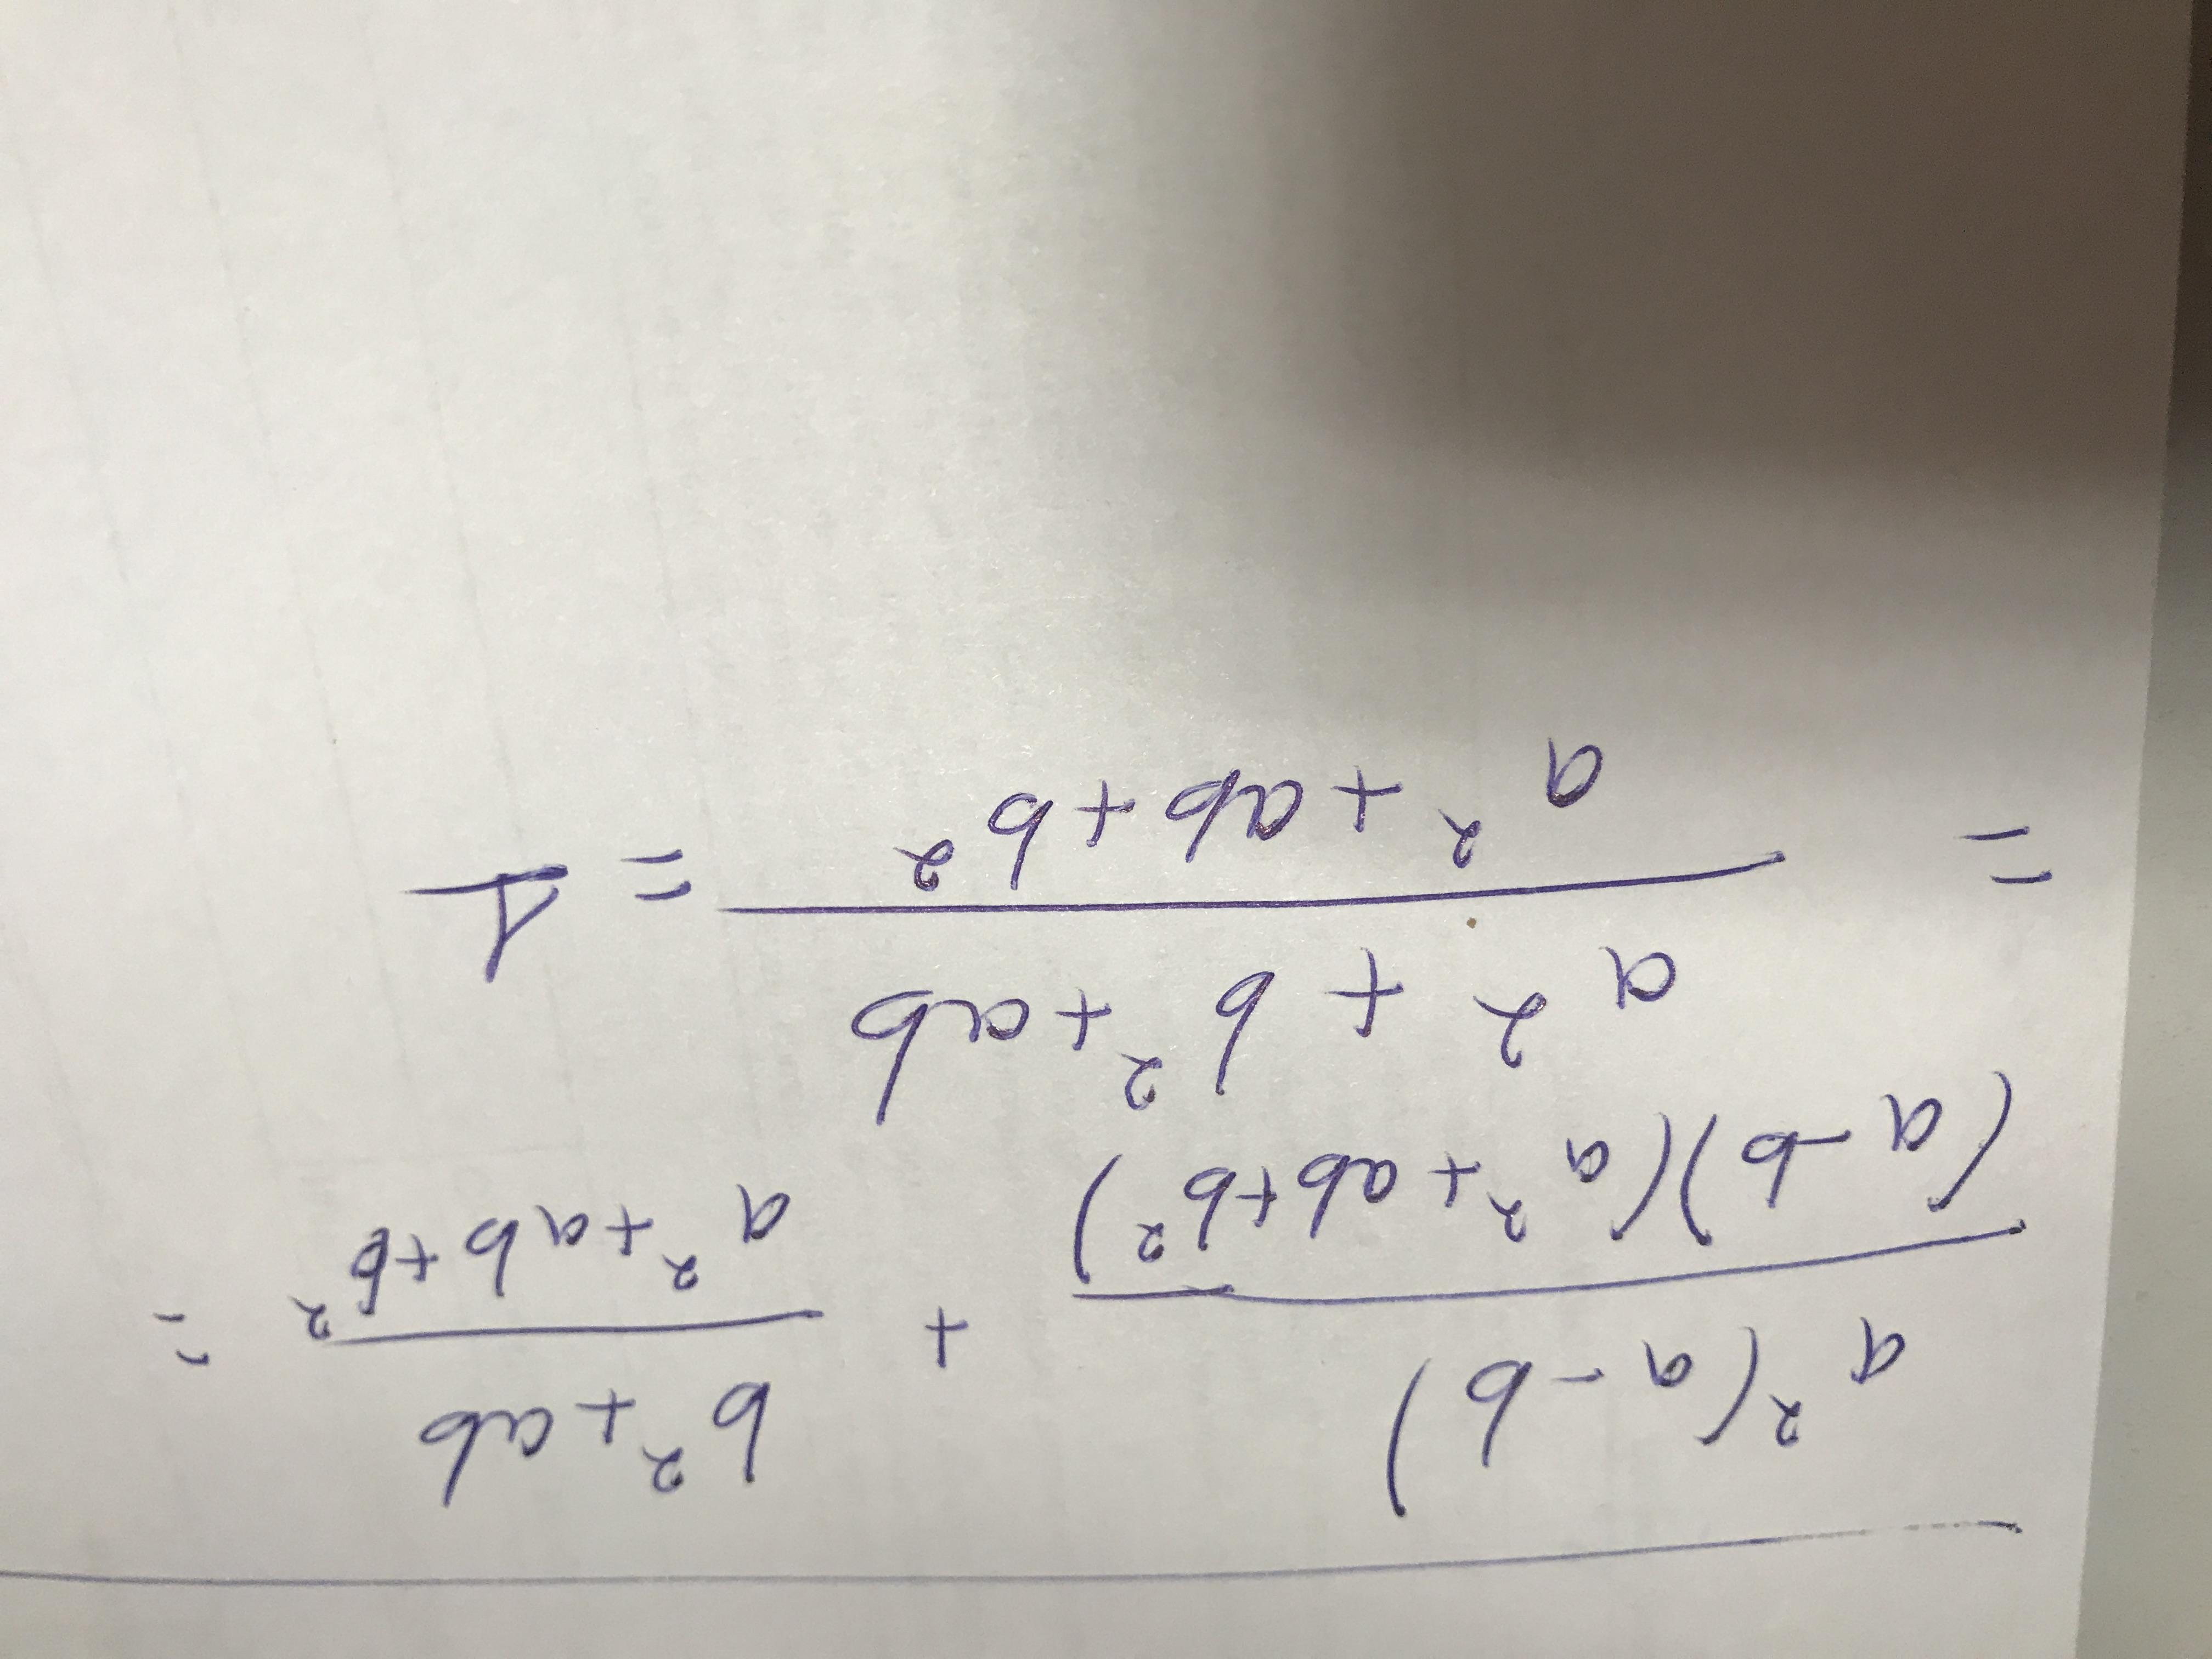 a²(a-b)/(a-b)(a²+ab+b²) + b²+ab/a²+ab+b² =
= a²+b²+ab/a²+ab+b² = 1